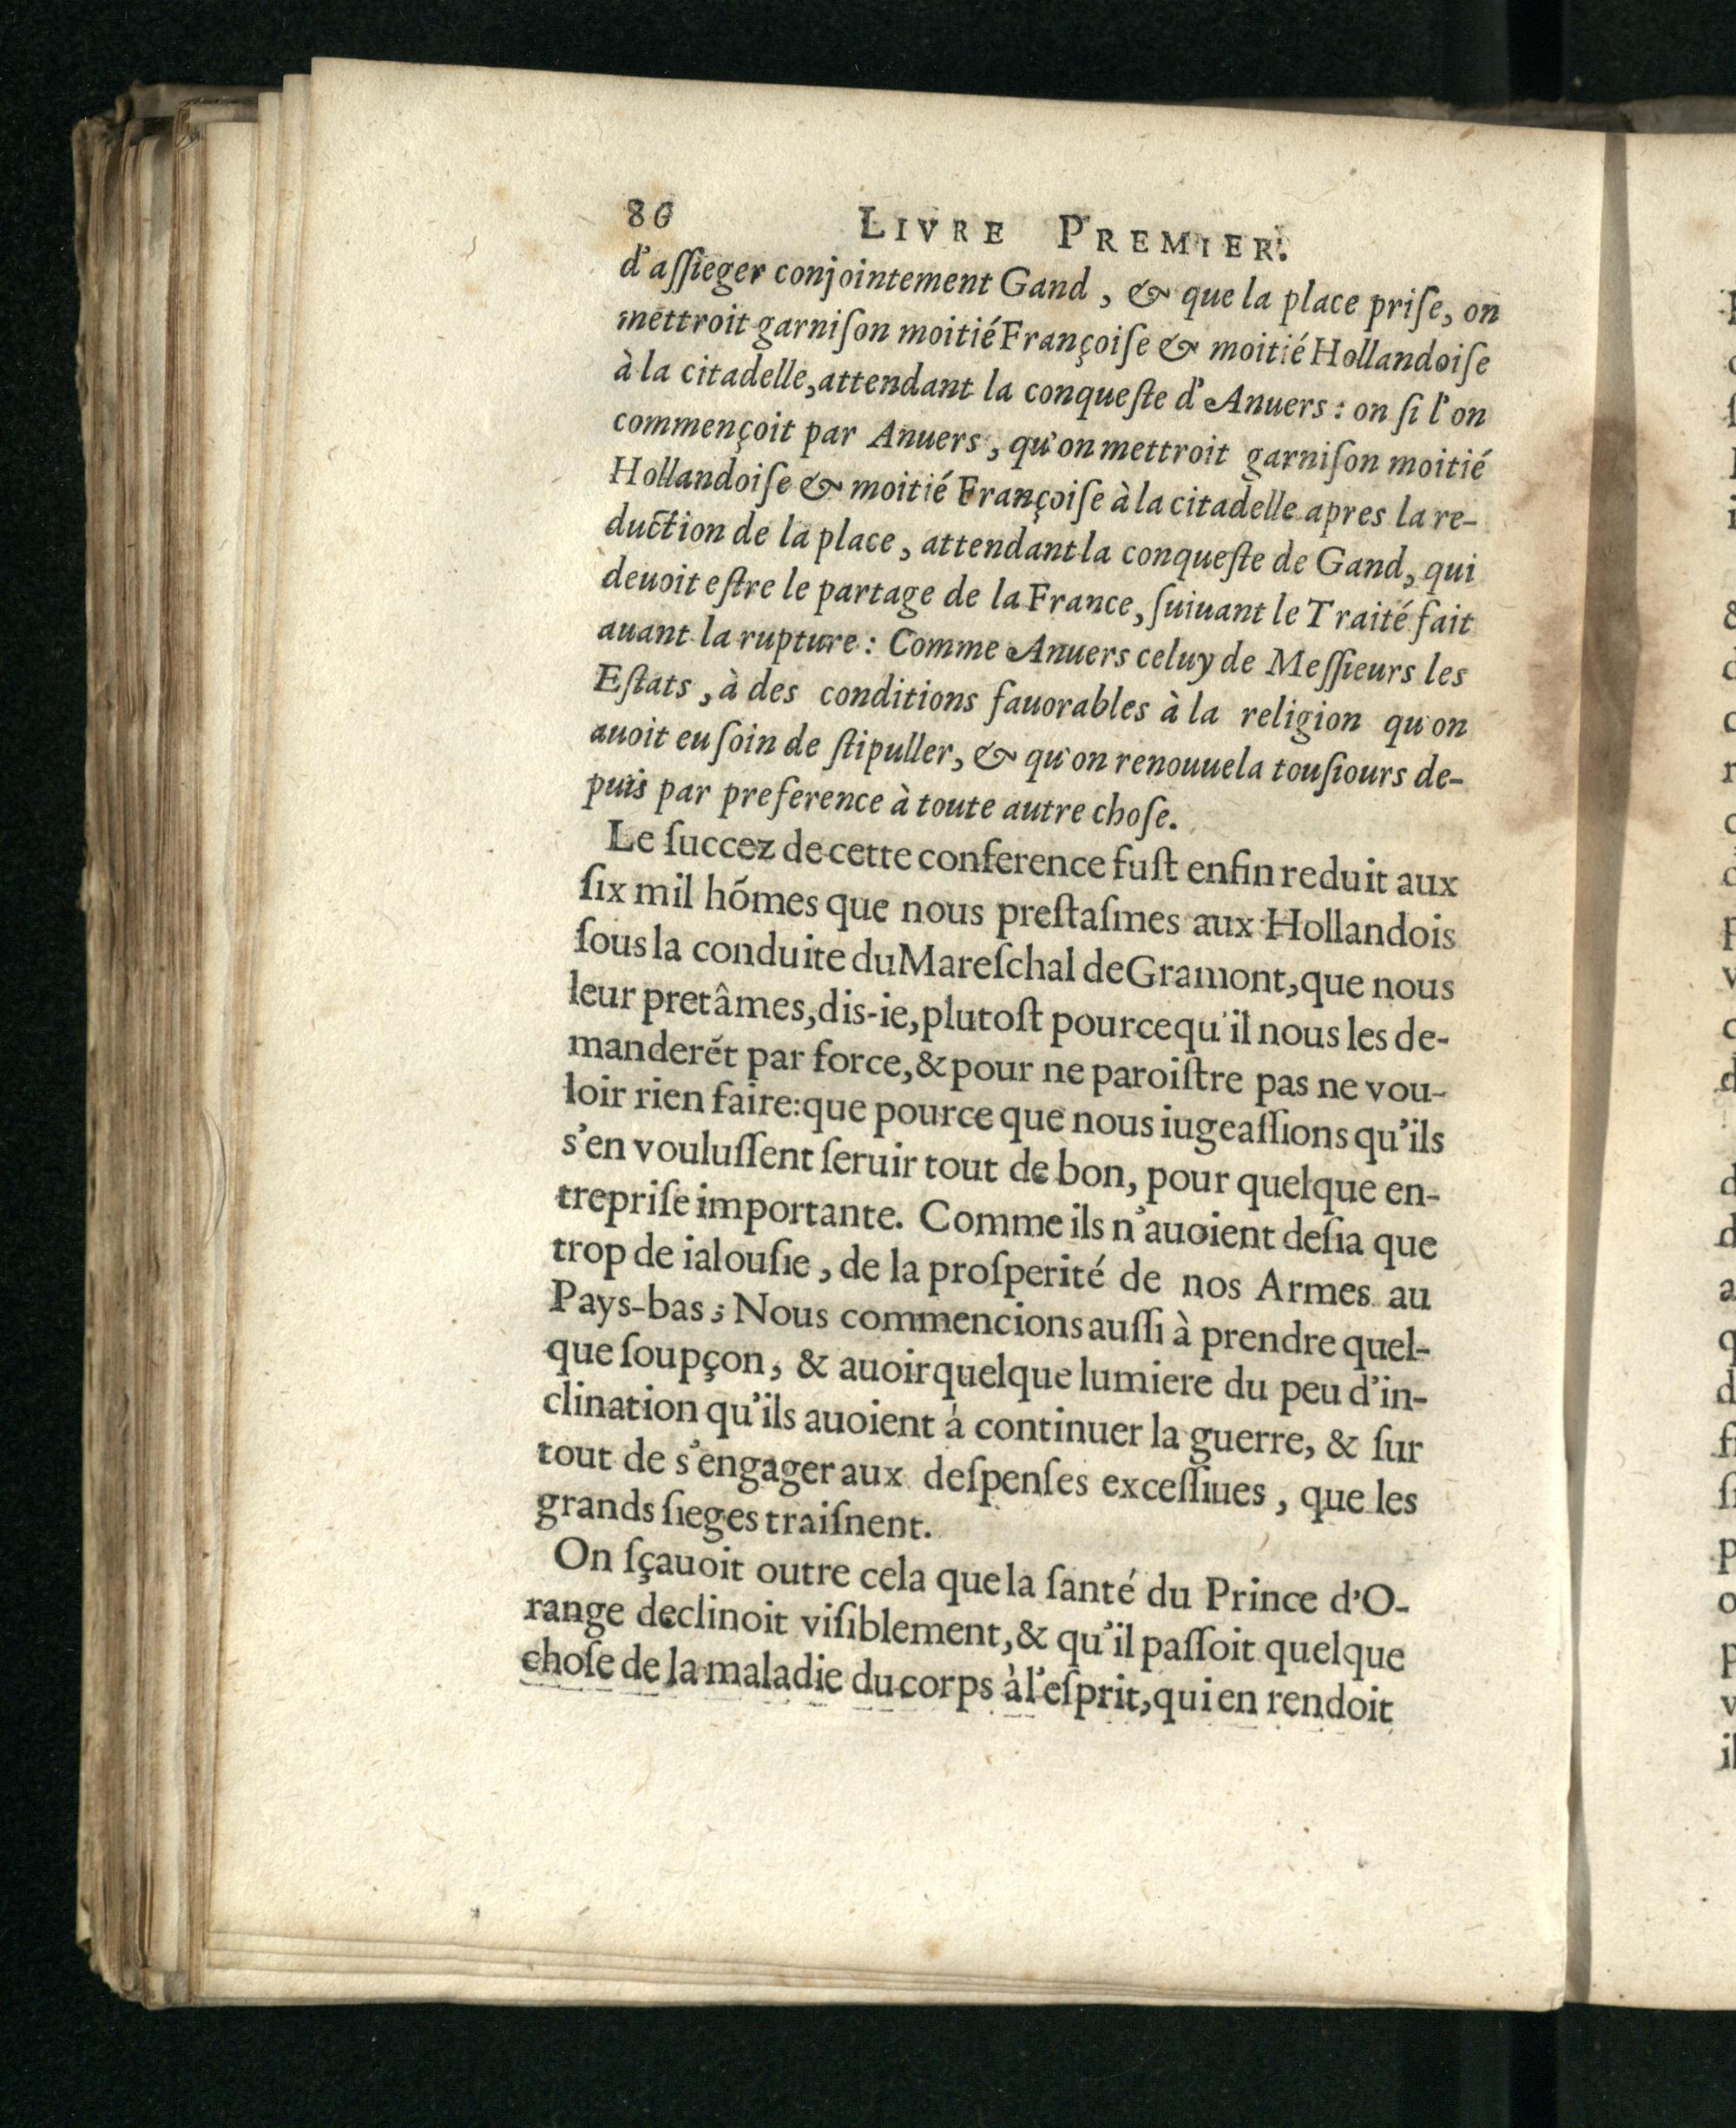 80 LIVRE PREMIER.
d'aſſieger conjointement Gand, & que la place priſe, on
mettroit garniſon moitié Françoiſe & moitié Hollandoiſe
à la citadelle, attendant la conqueſte d'Anuers : on ſi l'on
commençoit par Anuers, qu'on mettroit garniſon moitié
Hollandoiſe & moitié Françoiſe à la citadelle apres la re-
duction de la place, attendant la conqueſte de Gand, qui
deuoit eſtre le partage de la France, ſuiuant le Traité fait
auant la rupture : Comme Anuers celuy de Meſſieurs les
Eſtats, à des conditions fauorables à la religion qu'on
auoit eu ſoin de ſtipuller, & qu'on renouuela touſiours de-
puis par preference à toute autre choſe.
Le ſuccez de cette conference fuſt enfin reduit aux
ſix mil hõmes que nous preſtaſmes aux Hollandois
ſous la conduite du Mareſchal de Gramont, que nous
leur pretâmes, dis-ie, plutoſt pource qu'il nous les de-
manderẽt par force, & pour ne paroiſtre pas ne vou-
loir rien faire: que pource que nous iugeaſſions qu'ils
s'en vouluſſent ſeruir tout de bon, pour quelque en-
trepriſe importante. Comme ils n'auoient deſia que
trop de ialouſie, de la proſperité de nos Armes au
Pays-bas ; Nous commencions auſſi à prendre quel-
que ſoupçon, & auoir quelque lumiere du peu d'in-
clination qu'ils auoient à continuer la guerre, & ſur
tout de s'engager aux deſpenſes exceſſiues, que les
grands ſieges traiſnent.
On ſçauoit outre cela que la ſanté du Prince d'O-
range declinoit viſiblement, & qu'il paſſoit quelque
choſe de la maladie du corps à l'eſprit, qui en rendoit